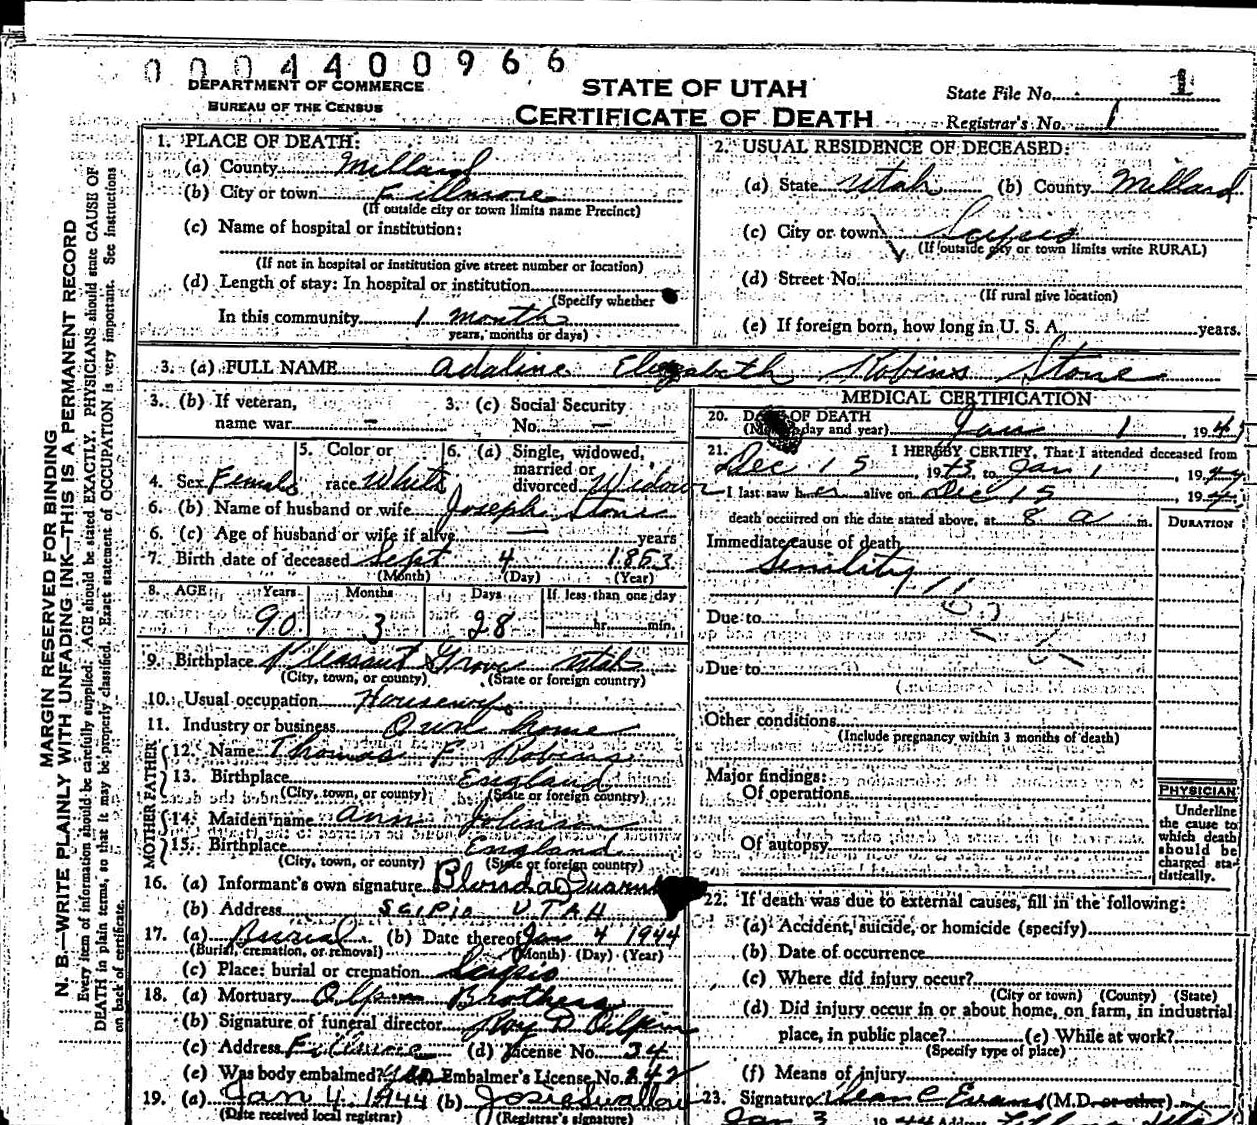 0 0 0 4 4 0 0 9 6 6
DEPARTMENT OF COMMERCE
BUREAU OF THE CENSUS
STATE OF UTAH
CERTIFICATE OF DEATH
State File No. 1
Registrar's No. 1
MARGIN RESERVED FOR BINDING
N. B.—WRITE PLAINLY WITH UNFADING INK—THIS IS A PERMANENT RECORD
Every item of information should be carefully supplied. AGE should be stated EXACTLY. PHYSICIANS should state CAUSE OF
DEATH in plain terms, so that it may be properly classified. Exact statement of OCCUPATION is very important. See instructions
on back of certificate.
1. PLACE OF DEATH:
(a) County Millard
(b) City or town Fillmore
(If outside city or town limits name Precinct)
(c) Name of hospital or institution:
(If not in hospital or institution give street number or location)
(d) Length of stay: In hospital or institution
(Specify whether
In this community 1 month
years, months or days)
2. USUAL RESIDENCE OF DECEASED:
(a) State Utah (b) County Millard
(c) City or town Scipio
(If outside city or town limits write RURAL)
(d) Street No.
(If rural give location)
(e) If foreign born, how long in U. S. A. years.
3. (a) FULL NAME Adaline Elizabeth Robins Stone
3. (b) If veteran, name war —
3. (c) Social Security No. —
4. Sex Female
5. Color or race White
6. (a) Single, widowed, married or divorced Widow
6. (b) Name of husband or wife Joseph Stone
6. (c) Age of husband or wife if alive — years
7. Birth date of deceased Sept 4 1853
(Month) (Day) (Year)
8. AGE Years Months Days If less than one day
90 3 28 hr. min.
9. Birthplace Pleasant Grove Utah
(City, town, or county) (State or foreign country)
10. Usual occupation Housewife
11. Industry or business Own home
FATHER
12. Name Thomas F. Robins
13. Birthplace England
(City, town, or county) (State or foreign country)
MOTHER
14. Maiden name Ann Johnson
15. Birthplace England
(City, town, or county) (State or foreign country)
16. (a) Informant's own signature
(b) Address SCIPIO UTAH
17. (a) Burial (b) Date thereof Jan 4 1944
(Burial, cremation, or removal) (Month) (Day) (Year)
(c) Place: burial or cremation Scipio
18. (a) Mortuary Olpin Brothers
(b) Signature of funeral director Roy D Olpin
(c) Address Fillmore (d) License No. 34
(e) Was body embalmed? yes Embalmer's License No. 242
19. (a) Jan 4 1944 (b) Josie Swallow
(Date received local registrar) (Registrar's signature)
MEDICAL CERTIFICATION
20. DATE OF DEATH
(Month, day and year) Jan 1, 194
21. I HEREBY CERTIFY, That I attended deceased from
Dec 15, 1943, to Jan 1, 1944
I last saw her alive on Dec 15, 194
death occurred on the date stated above, at 8 a m.
DURATION
Immediate cause of death
Senility
Due to
Due to
Other conditions
(Include pregnancy within 3 months of death)
Major findings:
Of operations
Of autopsy
PHYSICIAN
Underline
the cause to
which death
should be
charged sta-
tistically.
22. If death was due to external causes, fill in the following:
(a) Accident, suicide, or homicide (specify)
(b) Date of occurrence
(c) Where did injury occur?
(City or town) (County) (State)
(d) Did injury occur in or about home, on farm, in industrial
place, in public place? (e) While at work?
(Specify type of place)
(f) Means of injury
23. Signature Dean C Evans (M.D. or other)
Jan 3 1944 Address Fillmore Utah